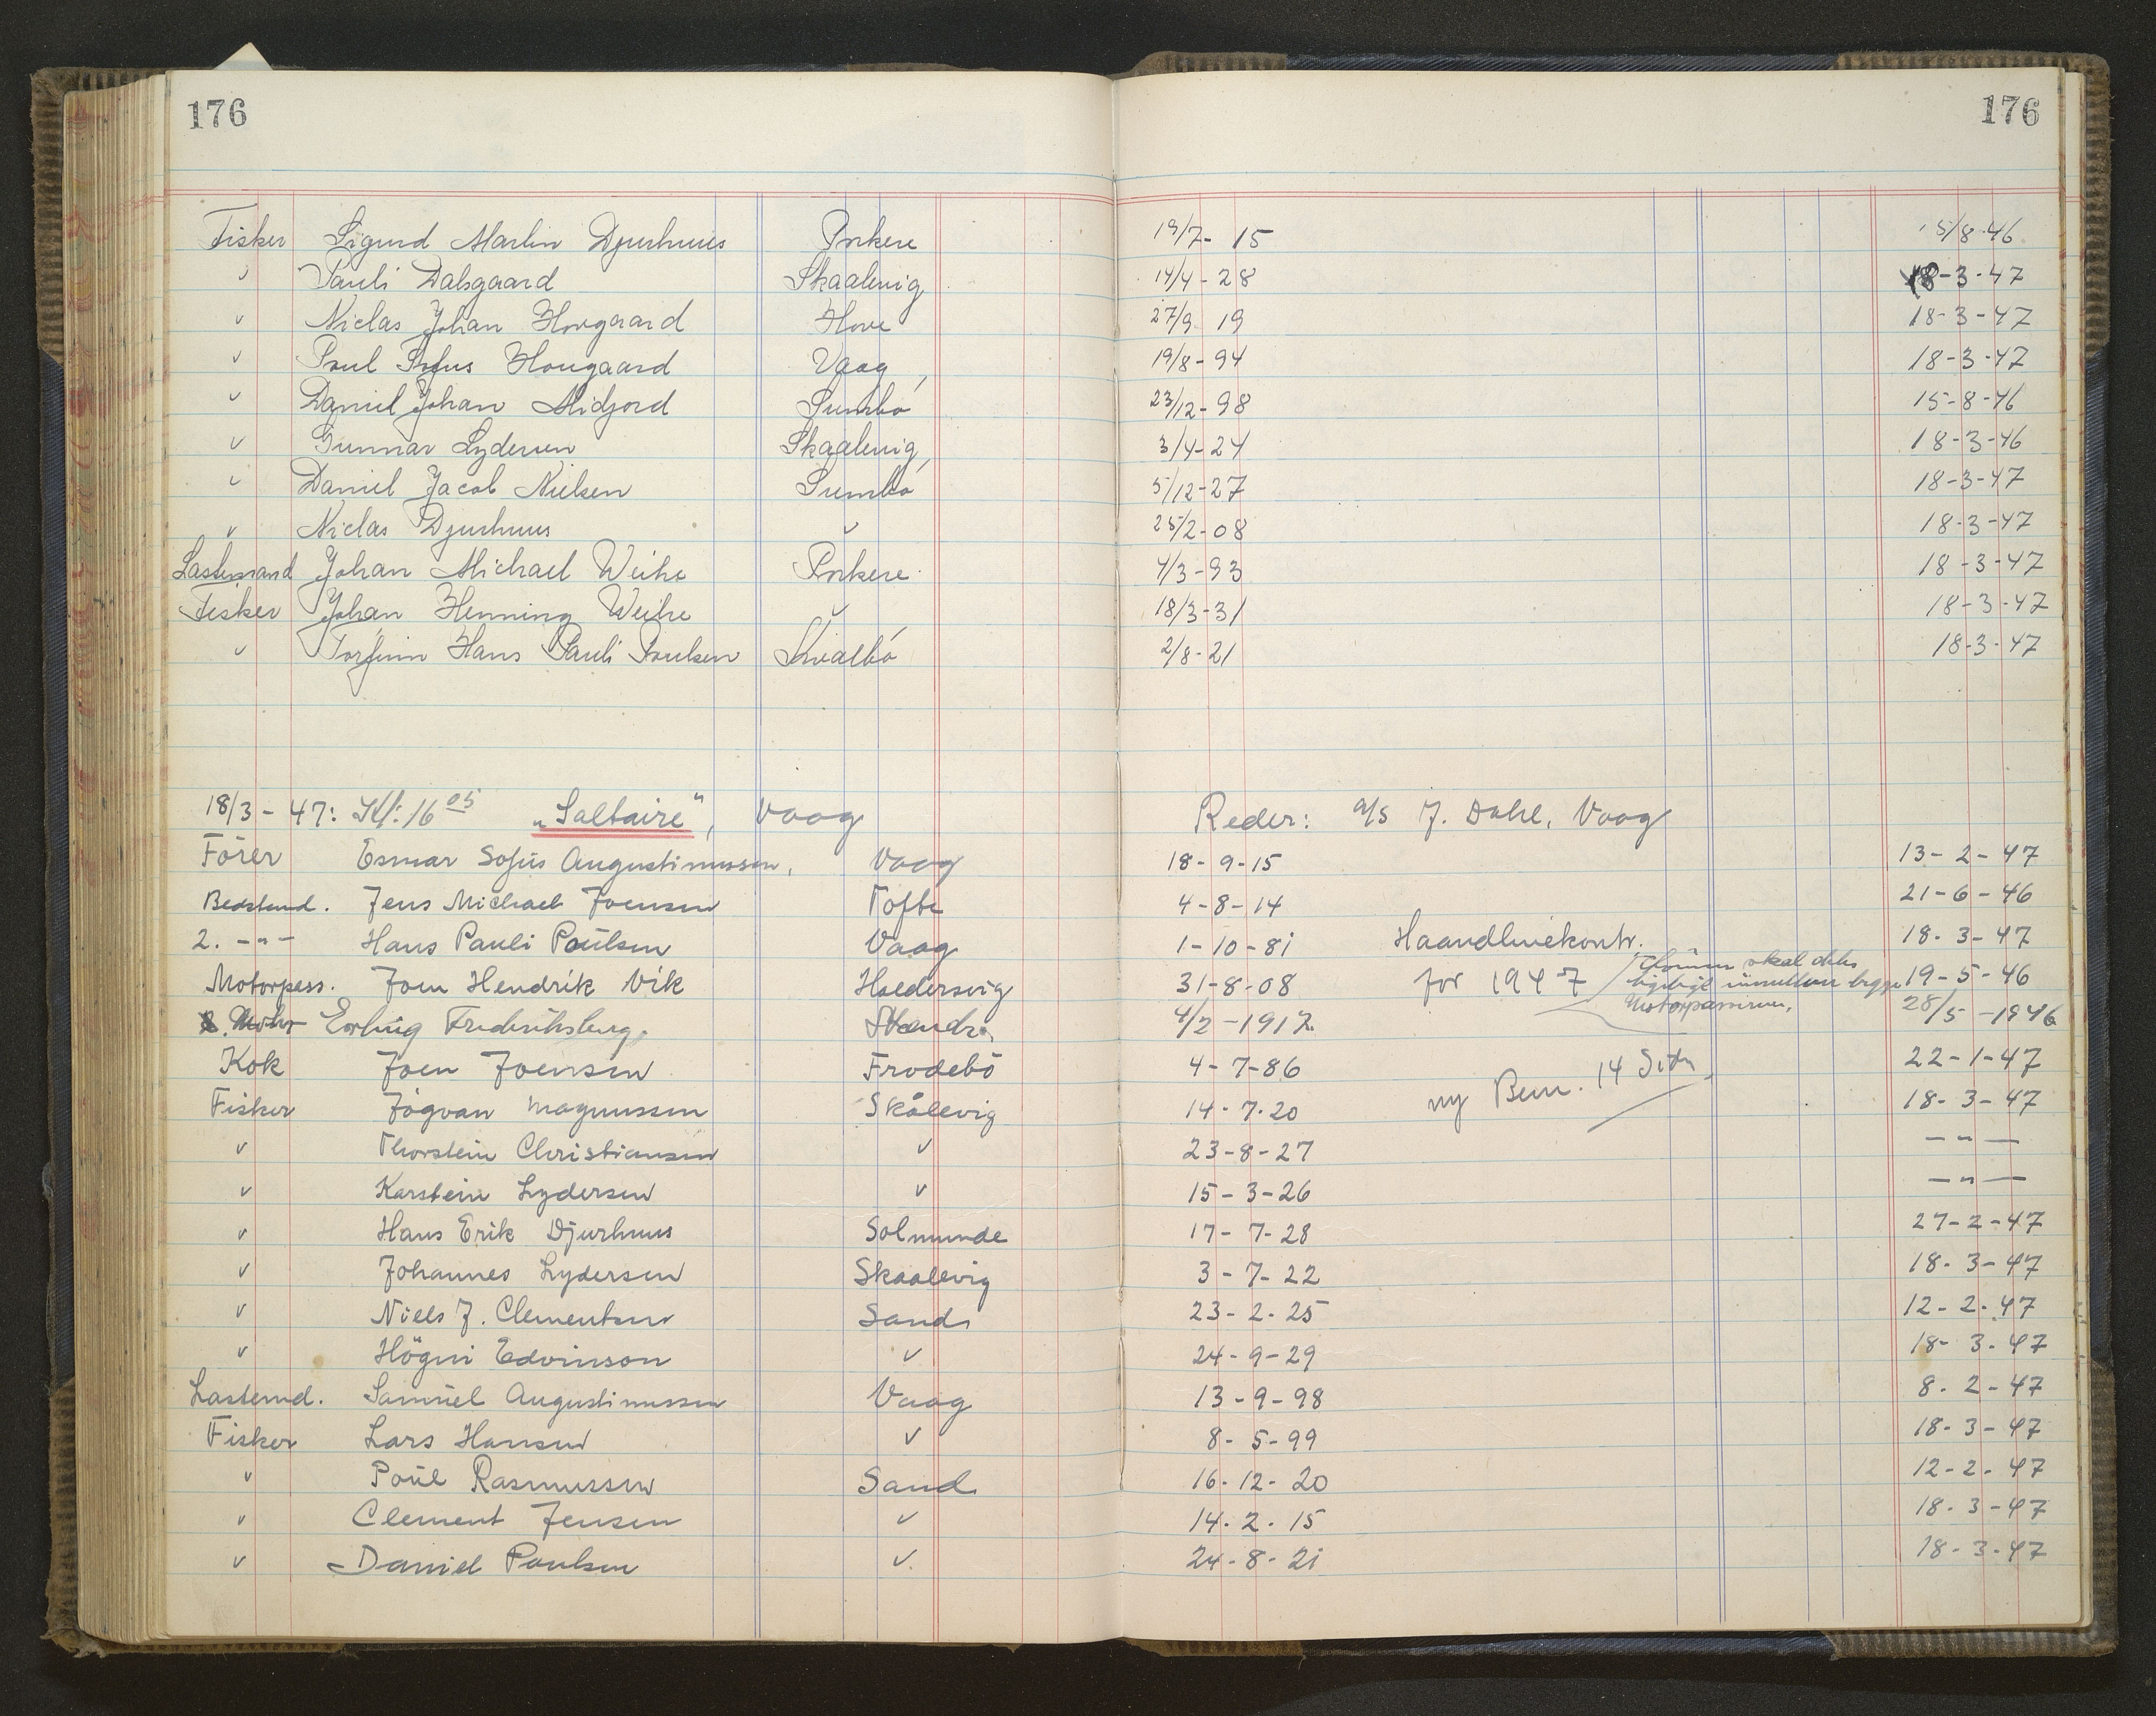 176 176
Fisker Sigurd Martin Djurhuus Porkere 19/7 - 15 15/8 46
" Pauli Dalsgaard Skaalevig 14/4 - 28 18-3-47
" Niclas Johan Hovgaard Hove 27/9 19 18-3-47
" Poul Sofus Hovgaard Vaag 19/8 - 94 18-3-47
" Daniel Johan Midjord Sumbø 23/12 - 98 15-8-46
" Gunnar Lydersen Skaalevig 3/4 - 24 18-3-46
" Daniel Jacob Nielsen Sumbø 5/12 - 27 18-3-47
" Niclas Djurhuus " 25/2 - 08 18-3-47
Lastemand Johan Michael Weihe Porkere 4/3 - 93 18-3-47
Fisker Johan Henning Weihe " 18/3 - 31 18-3-47
" Torfinn Hans Pauli Poulsen 2/8 - 21 18-3-47
18/3 - 47: Kl: 16 05 "Saltaire", Vaag Reder: a/s J. Dahl, Vaag
Fører Esmar Sofus Augustinussen, Vaag 18-9-15 13-2-47
Bedstmd. Jens Michael Joensen Tofte 4-8-14 21-6-46
2. -"- Hans Pauli Poulsen Vaag 1-10-81 Haandlinekontr. 18-3-47
Motorpass. Joen Hendrik Vik Haldersvig 31-8-08 for 1947 skal deles ligeligt imellem begge Motorpasserne. 19-5-46
2. Erling Frederiksberg, 4/2 - 1917 28/5 - 1946
Kok Joen Joensen Frodebö 4-7-86 22-1-47
Fisker Jógvan Magnussen Skålevig 14-7-20 ny Bem. 14 18-3-47
" Thorstein Christiansen " 23-8-27 -"-
" Karstein Lydersen " 15-3-26 -"-
" Hans Erik Djurhuus Solmunde 17-7-28 27-2-47
" Johannes Lydersen Skaalevig 3-7-22 18-3-47
" Niels J. Clementsen Sand 23-2-25 12-2-47
" Högni Edvinson " 24-9-29 18-3-47
Lastemd. Samuel Augustinussen Vaag 13-9-98 8-2-47
Fisker Lars Hansen " 8-5-99 18-3-47
" Poul Rasmussen Sand 16-12-20 12-2-47
" Clement Jensen " 14-2-15 18-3-47
" Daniel Poulsen " 24-8-21 18-3-47